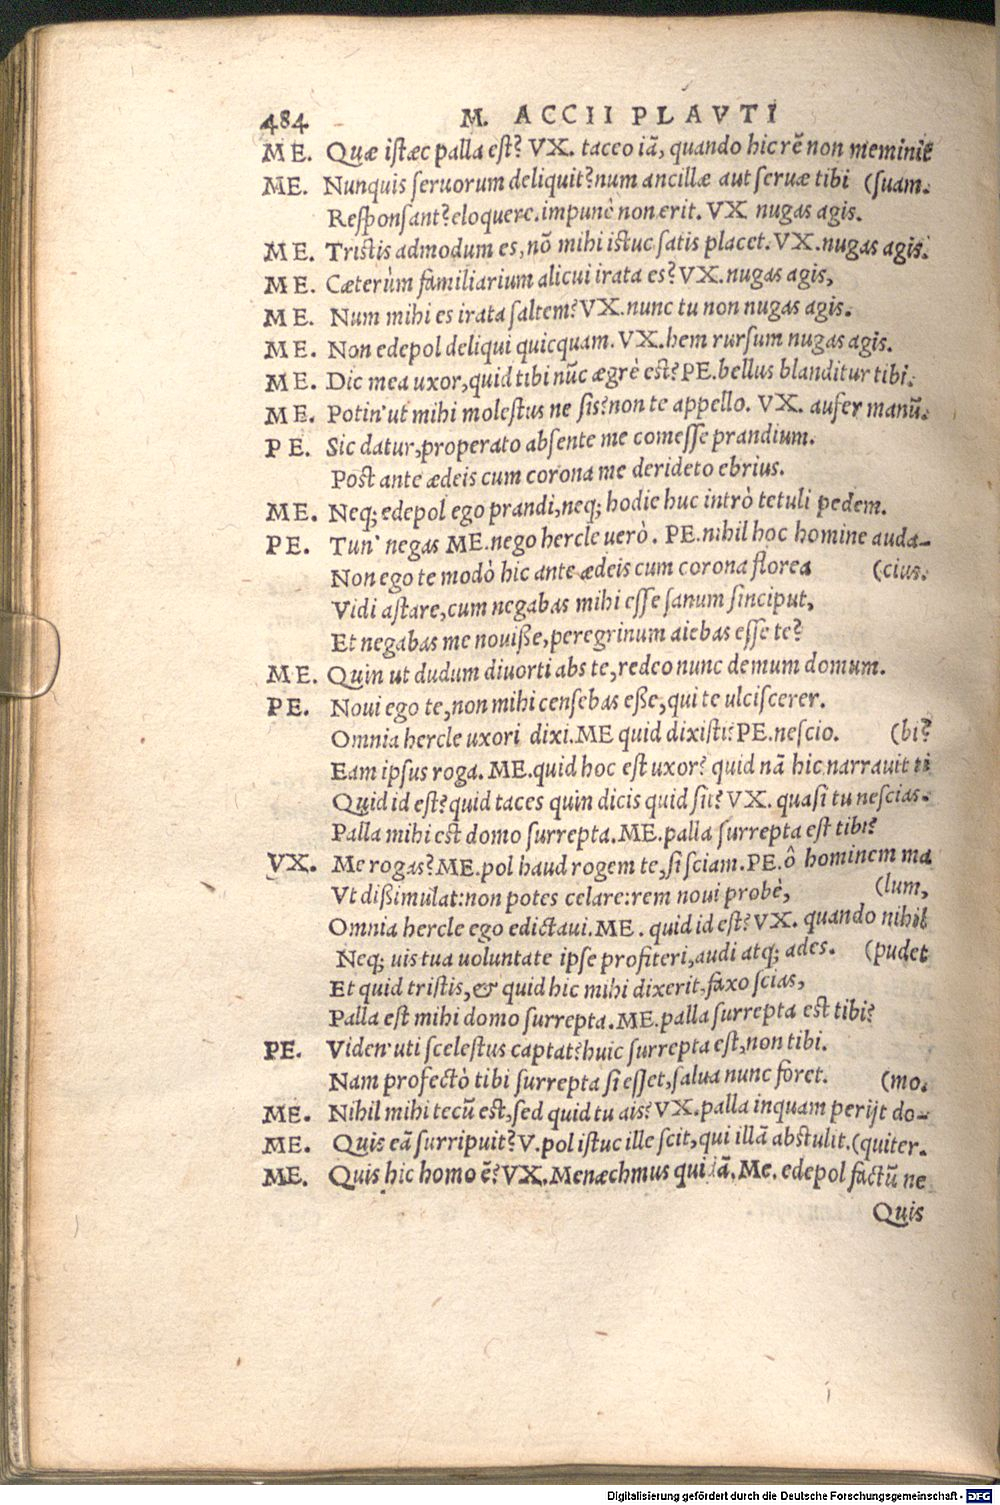 484 M. ACCII PLAVTI
ME. Quæ istæc palla est? VX. taceo iã, quando hic rẽ non meminit
ME. Nunquis seruorum deliquit? num ancillæ aut seruæ tibi (suam.
Responsant? eloquere. impunè non erit. VX nugas agis.
ME. Tristis admodum es, nõ mihi istuc satis placet. VX. nugas agis.
ME. Cæterùm familiarium alicui irata es? VX. nugas agis,
ME. Num mihi es irata saltem? VX. nunc tu non nugas agis.
ME. Non edepol deliqui quicquam. VX. hem rursum nugas agis.
ME. Dic mea uxor, quid tibi nũc ægrè est? PE. bellus blanditur tibi.
ME. Potin' ut mihi molestus ne sis? non te appello. VX. aufer manũ.
PE. Sic datur, properato absente me comesse prandium.
Post ante ædeis cum corona me derideto ebrius.
ME. Neq; edepol ego prandi, neq; hodie huc intrò tetuli pedem.
PE. Tun' negas ME. nego hercle uerò. PE. nihil hoc homine auda-
Non ego te modò hic ante ædeis cum corona florea (cius.
Vidi astare, cum negabas mihi esse sanum sinciput,
Et negabas me nouiße, peregrinum aiebas esse te?
ME. Quin ut dudum diuorti abs te, redeo nunc demum domum.
PE. Noui ego te, non mihi censebas eße, qui te ulciscerer.
Omnia hercle uxori dixi. ME quid dixisti? PE. nescio. (bi?
Eam ipsus roga. ME. quid hoc est uxor? quid nã hic narrauit ti
Quid id est? quid taces quin dicis quid sit? VX. quasi tu nescias.
Palla mihi est domo surrepta. ME. palla surrepta est tibi?
VX. Me rogas? ME. pol haud rogem te, si sciam. PE. ô hominem ma
Vt dißimulat: non potes celare: rem noui probè, (lum,
Omnia hercle ego edictaui. ME. quid id est? VX. quando nihil
Neq; uis tua uoluntate ipse profiteri, audi atq; ades. (pudet
Et quid tristis, & quid hic mihi dixerit, faxo scias,
Palla est mihi domo surrepta. ME. palla surrepta est tibi?
PE. Viden' uti scelestus captat? huic surrepta est, non tibi.
Nam profectò tibi surrepta si esset, salua nunc foret. (mo.
ME. Nihil mihi tecũ est, sed quid tu ais? VX. palla inquam perijt do-
ME. Quis eã surripuit? V. pol istuc ille scit, qui illã abstulit. (quiter.
ME. Quis hic homo ẽ? VX. Menæchmus quidã. Me. edepol factũ ne
Quis
Digitalisierung gefördert durch die Deutsche Forschungsgemeinschaft - DFG